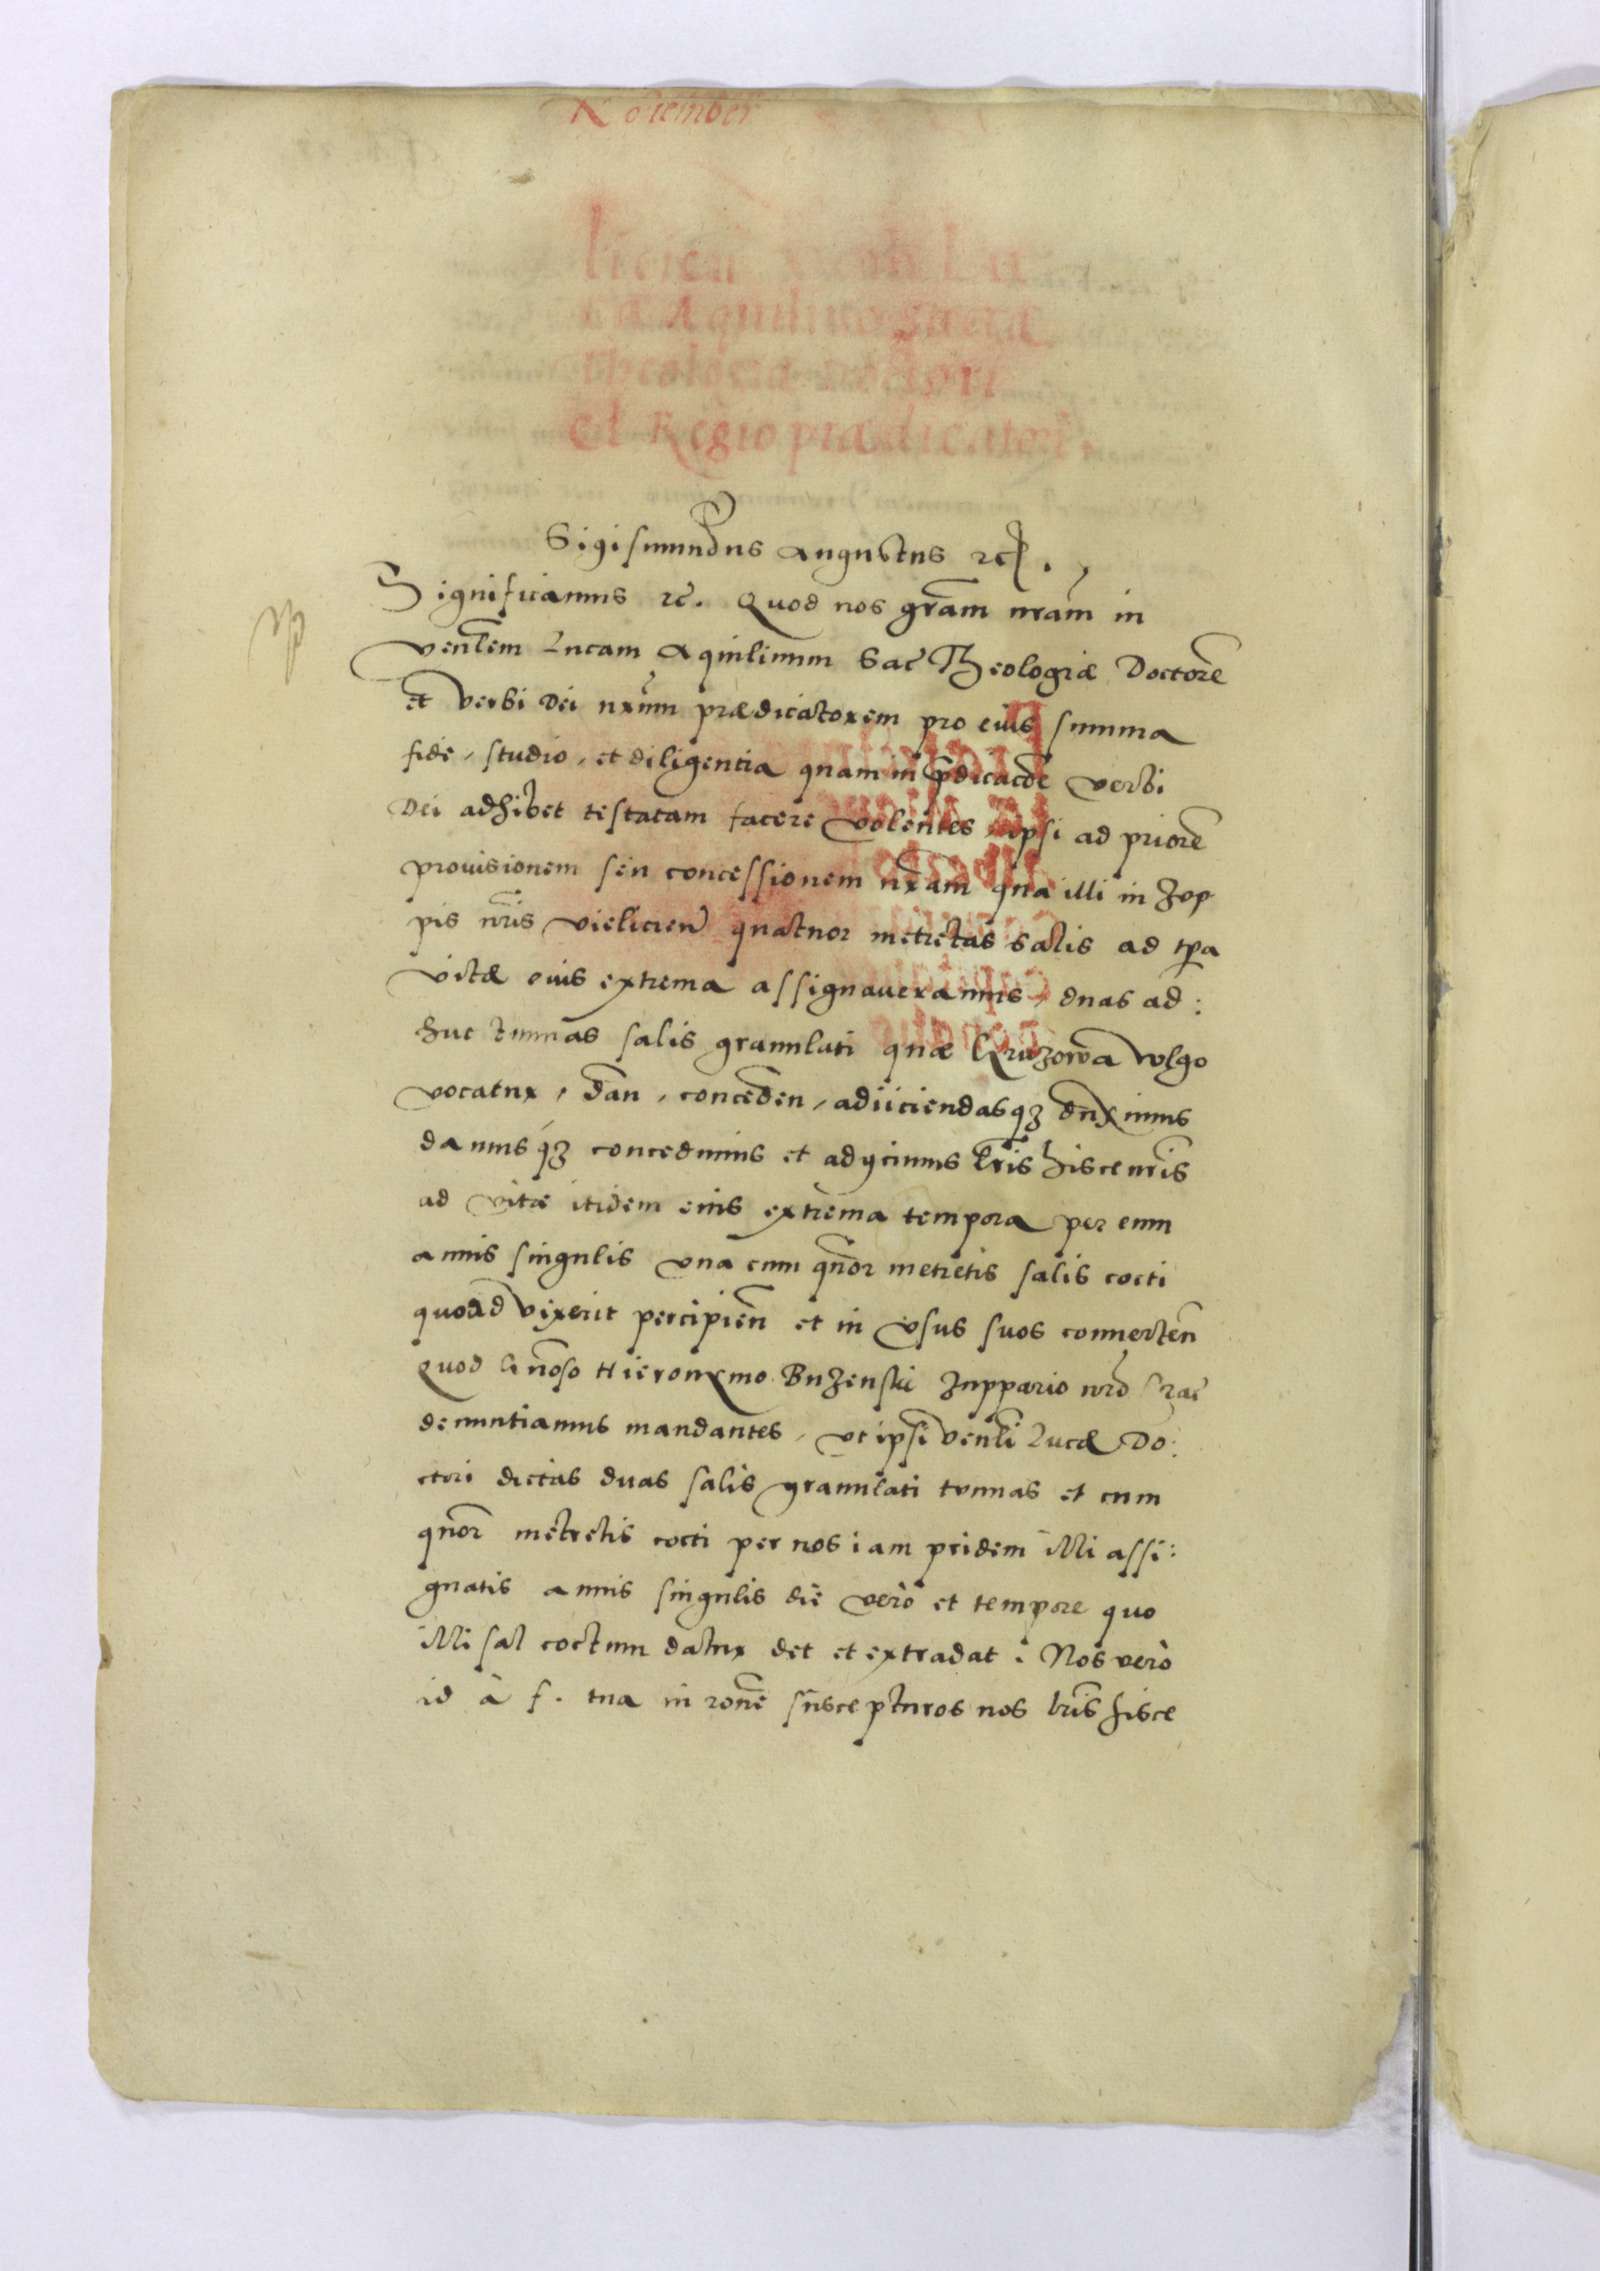 November
licien
ca Aquilino sacræ
theologiæ doctori
et Regio prædicatori.
Sigismundus Augustus ꝛc.
Significamus ꝛc. Quod nos gr̃am nr̃am in
Venl̃em Lucam Aquilinum Sac̃ Theologiæ Doctorẽ
et verbi Dei nr̃um prædicatorem pro eius summa
fide, studio, et diligentia quam in p̃dicacõe verbi
Dei adhibet testatam facere volentes ipsi ad priorẽ
provisionem seu concessionem nr̃am qua illi in Zop
pis nr̃is Vielicien̄ quatuor metretas salis ad tp̃a
vitæ eius extrema assignaveramus, duas ad:
huc tunnas salis granulati quæ Kruzowa vulgo
vocatur, dan̄, conceden̄, adiiciendasqꝫ duximus
damusqꝫ concedimus et adijcimus lr̃is hisce nr̃is
ad vitæ itidem eius extrema tempora per eum
annis singulis una cum qũor metretis salis cocti
quoad vixerit percipien̄ et in usus suos converten̄
Quod Gñoso Hieronymo Buzenski Zuppario nr̃o Crac̃
denuntiamus mandantes, ut ipsi Venl̃i Lucæ Do:
ctori dictas duas salis granulati tunnas et cum
qũor metretis cocti per nos iam pridem illi assi:
gnatis annis singulis die verò et tempore quo
illi sal coctum datur det et extradat. Nos verò
id à f. tua in rõne suscepturos nos lr̃is hisce